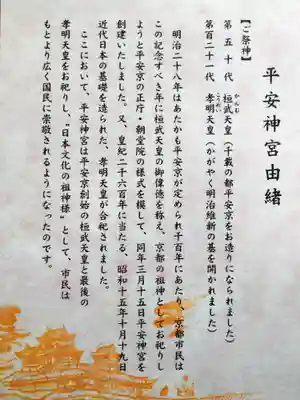 平安神宮由緒
【ご祭神】
第五十代 桓武天皇(千載の都平安京をお造りになられました)
かんむ
第百二十一代 孝明天皇(かがやく明治維新の基を開かれました)
こうめい
明治二十八年はあたかも平安京が定められ千百年にあたり、京都市民は
この記念すべき年に桓武天皇の御偉徳を称え、京都の祖神としてお祀りし
ようと平安京の正庁・朝堂院の様式を模して、同年三月十五日平安神宮を
創建いたしました。又、皇紀二千六百年に当たる、昭和十五年十月十九日
近代日本の基礎を造られた、孝明天皇が合祀されました。
ここにおいて、平安神宮は平安京創始の桓武天皇と最後の
孝明天皇をお祀りし、"日本文化の祖神様"として、市民は
もとより広く国民に崇敬されるようになったのです。